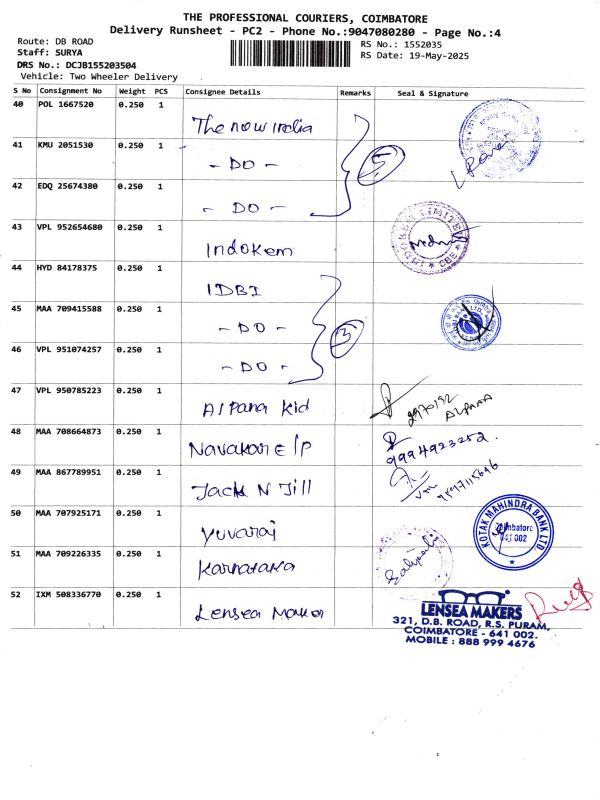 THE PROFESSIONAL COURIERS, COIMBATORE
Delivery Runsheet - PC2 - Phone No.:9047080280 - Page No.:4
Route: DB ROAD
Staff: SURYA
DRS No.: DCJB155203504
Vehicle: Two Wheeler Delivery
RS No.: 1552035
RS Date: 19-May-2025
S No Consignment No Weight PCS Consignee Details Remarks Seal & Signature
40 POL 1667520 0.250 1 The new india
41 KMU 2051530 0.250 1 - DO -
42 EDQ 25674380 0.250 1 - DO -
43 VPL 952654680 0.250 1 Indokem
44 HYD 84178375 0.250 1 IDBI
45 MAA 709415588 0.250 1 - DO -
3
46 VPL 951074257 0.250 1 - DO -
47 VPL 950785223 0.250 1 Alpana Kid
2970192
ALPANA
48 MAA 708664873 0.250 1 Navakar E/P
9994923252
49 MAA 867789951 0.250 1 Jack N Jill
50 MAA 707925171 0.250 1 Yuvaraj
KOTAK MAHINDRA BANK LTD.
Coimbatore
641 002
51 MAA 709226335 0.250 1 Karnataka
52 IXM 508336770 0.250 1 Lensea Maker
LENSEA MAKERS
321, D.B. ROAD, R.S. PURAM,
COIMBATORE - 641 002.
MOBILE : 888 999 4676